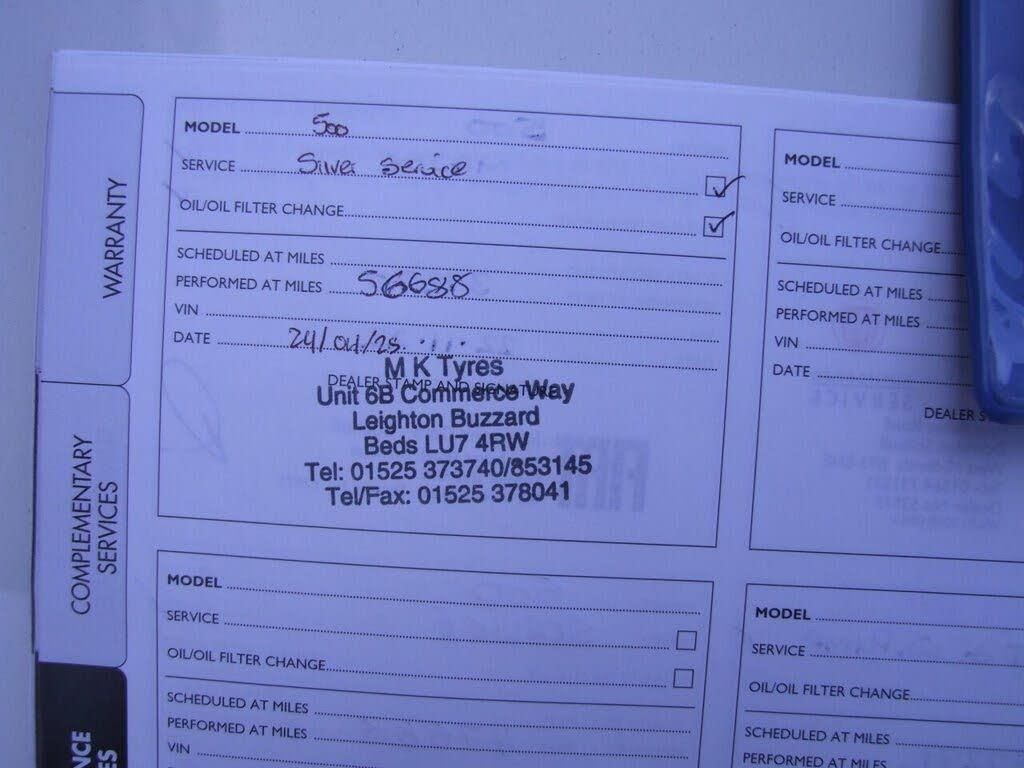 WARRANTY
COMPLEMENTARY
SERVICES
MODEL 500
SERVICE Silver Service
OIL/OIL FILTER CHANGE
SCHEDULED AT MILES
PERFORMED AT MILES 56688
VIN
DATE 24/04/25
DEALER STAMP AND SIGNATURE
M K Tyres
Unit 6B Commerce Way
Leighton Buzzard
Beds LU7 4RW
Tel: 01525 373740/853145
Tel/Fax: 01525 378041
MODEL
SERVICE
OIL/OIL FILTER CHANGE
SCHEDULED AT MILES
PERFORMED AT MILES
VIN
DATE
DEALER S
MODEL
SERVICE
OIL/OIL FILTER CHANGE
SCHEDULED AT MILES
PERFORMED AT MILES
VIN
MODEL
SERVICE
OIL/OIL FILTER CHANGE
SCHEDULED AT MILES
PERFORMED AT MILES